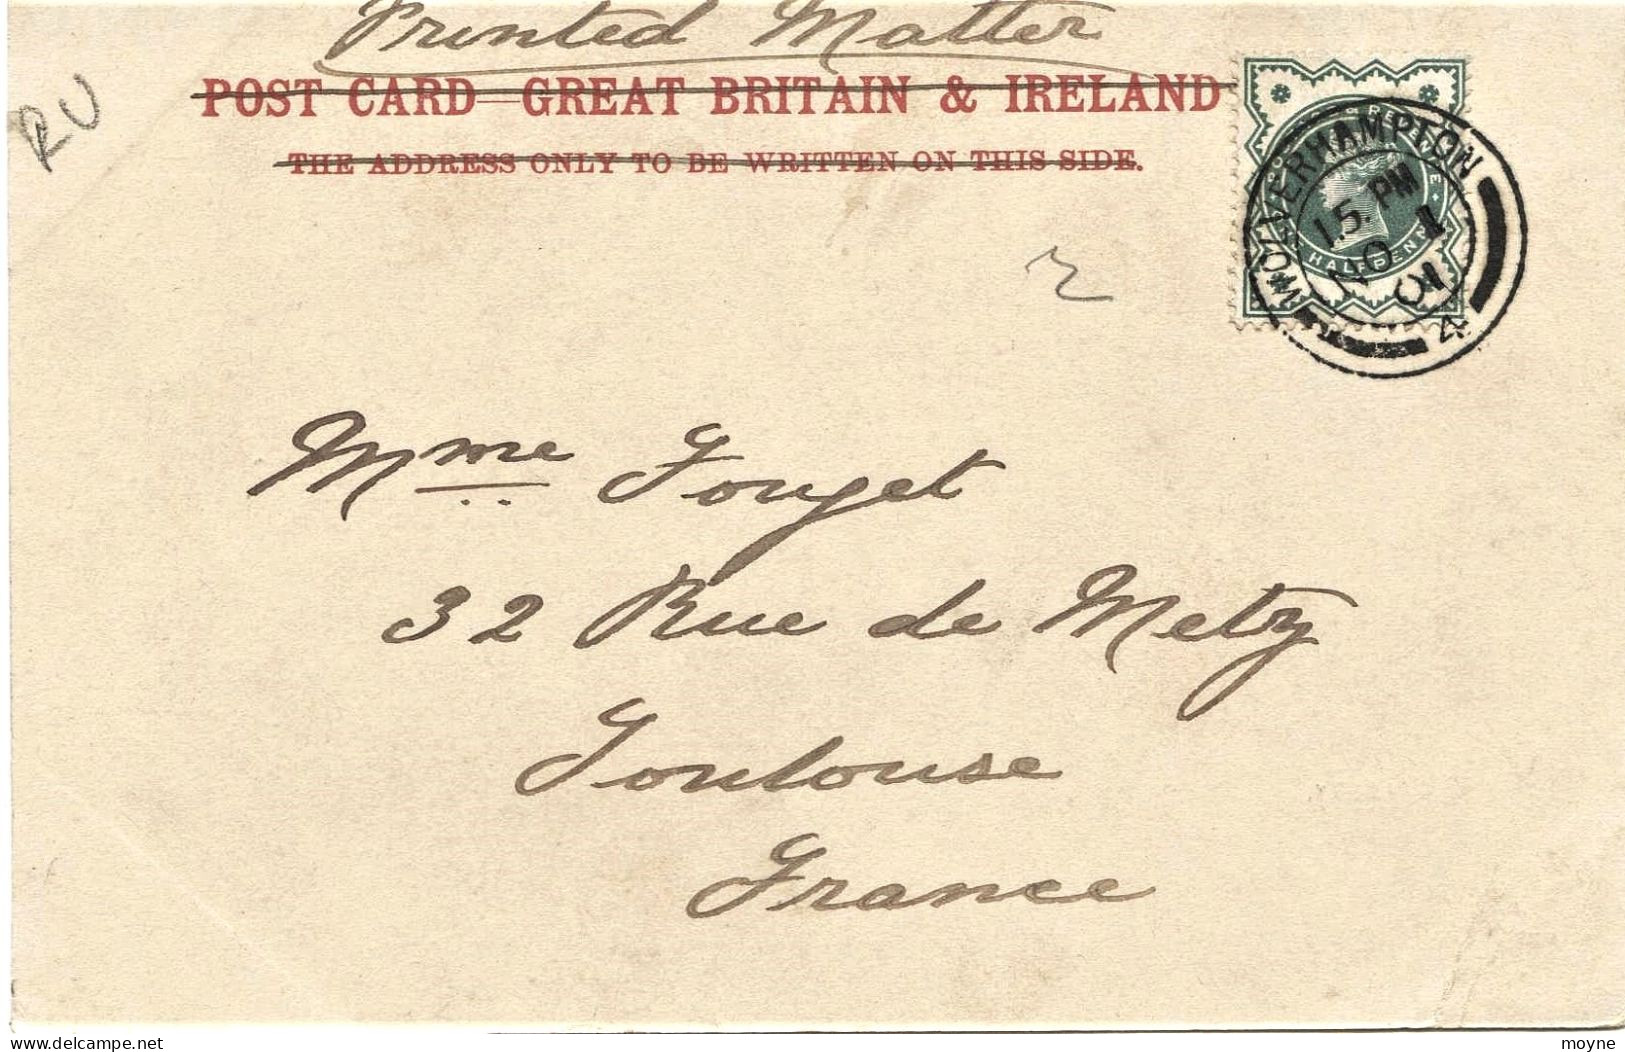 Printed Matter
POST CARD—GREAT BRITAIN & IRELAND
THE ADDRESS ONLY TO BE WRITTEN ON THIS SIDE.
RU
WOLVERHAMPTON
1.5. PM
NO 1
01
4
HALFPENNY
Mme Fouget
32 Rue de Metz
Toulouse
France
delcampe.net
moyne